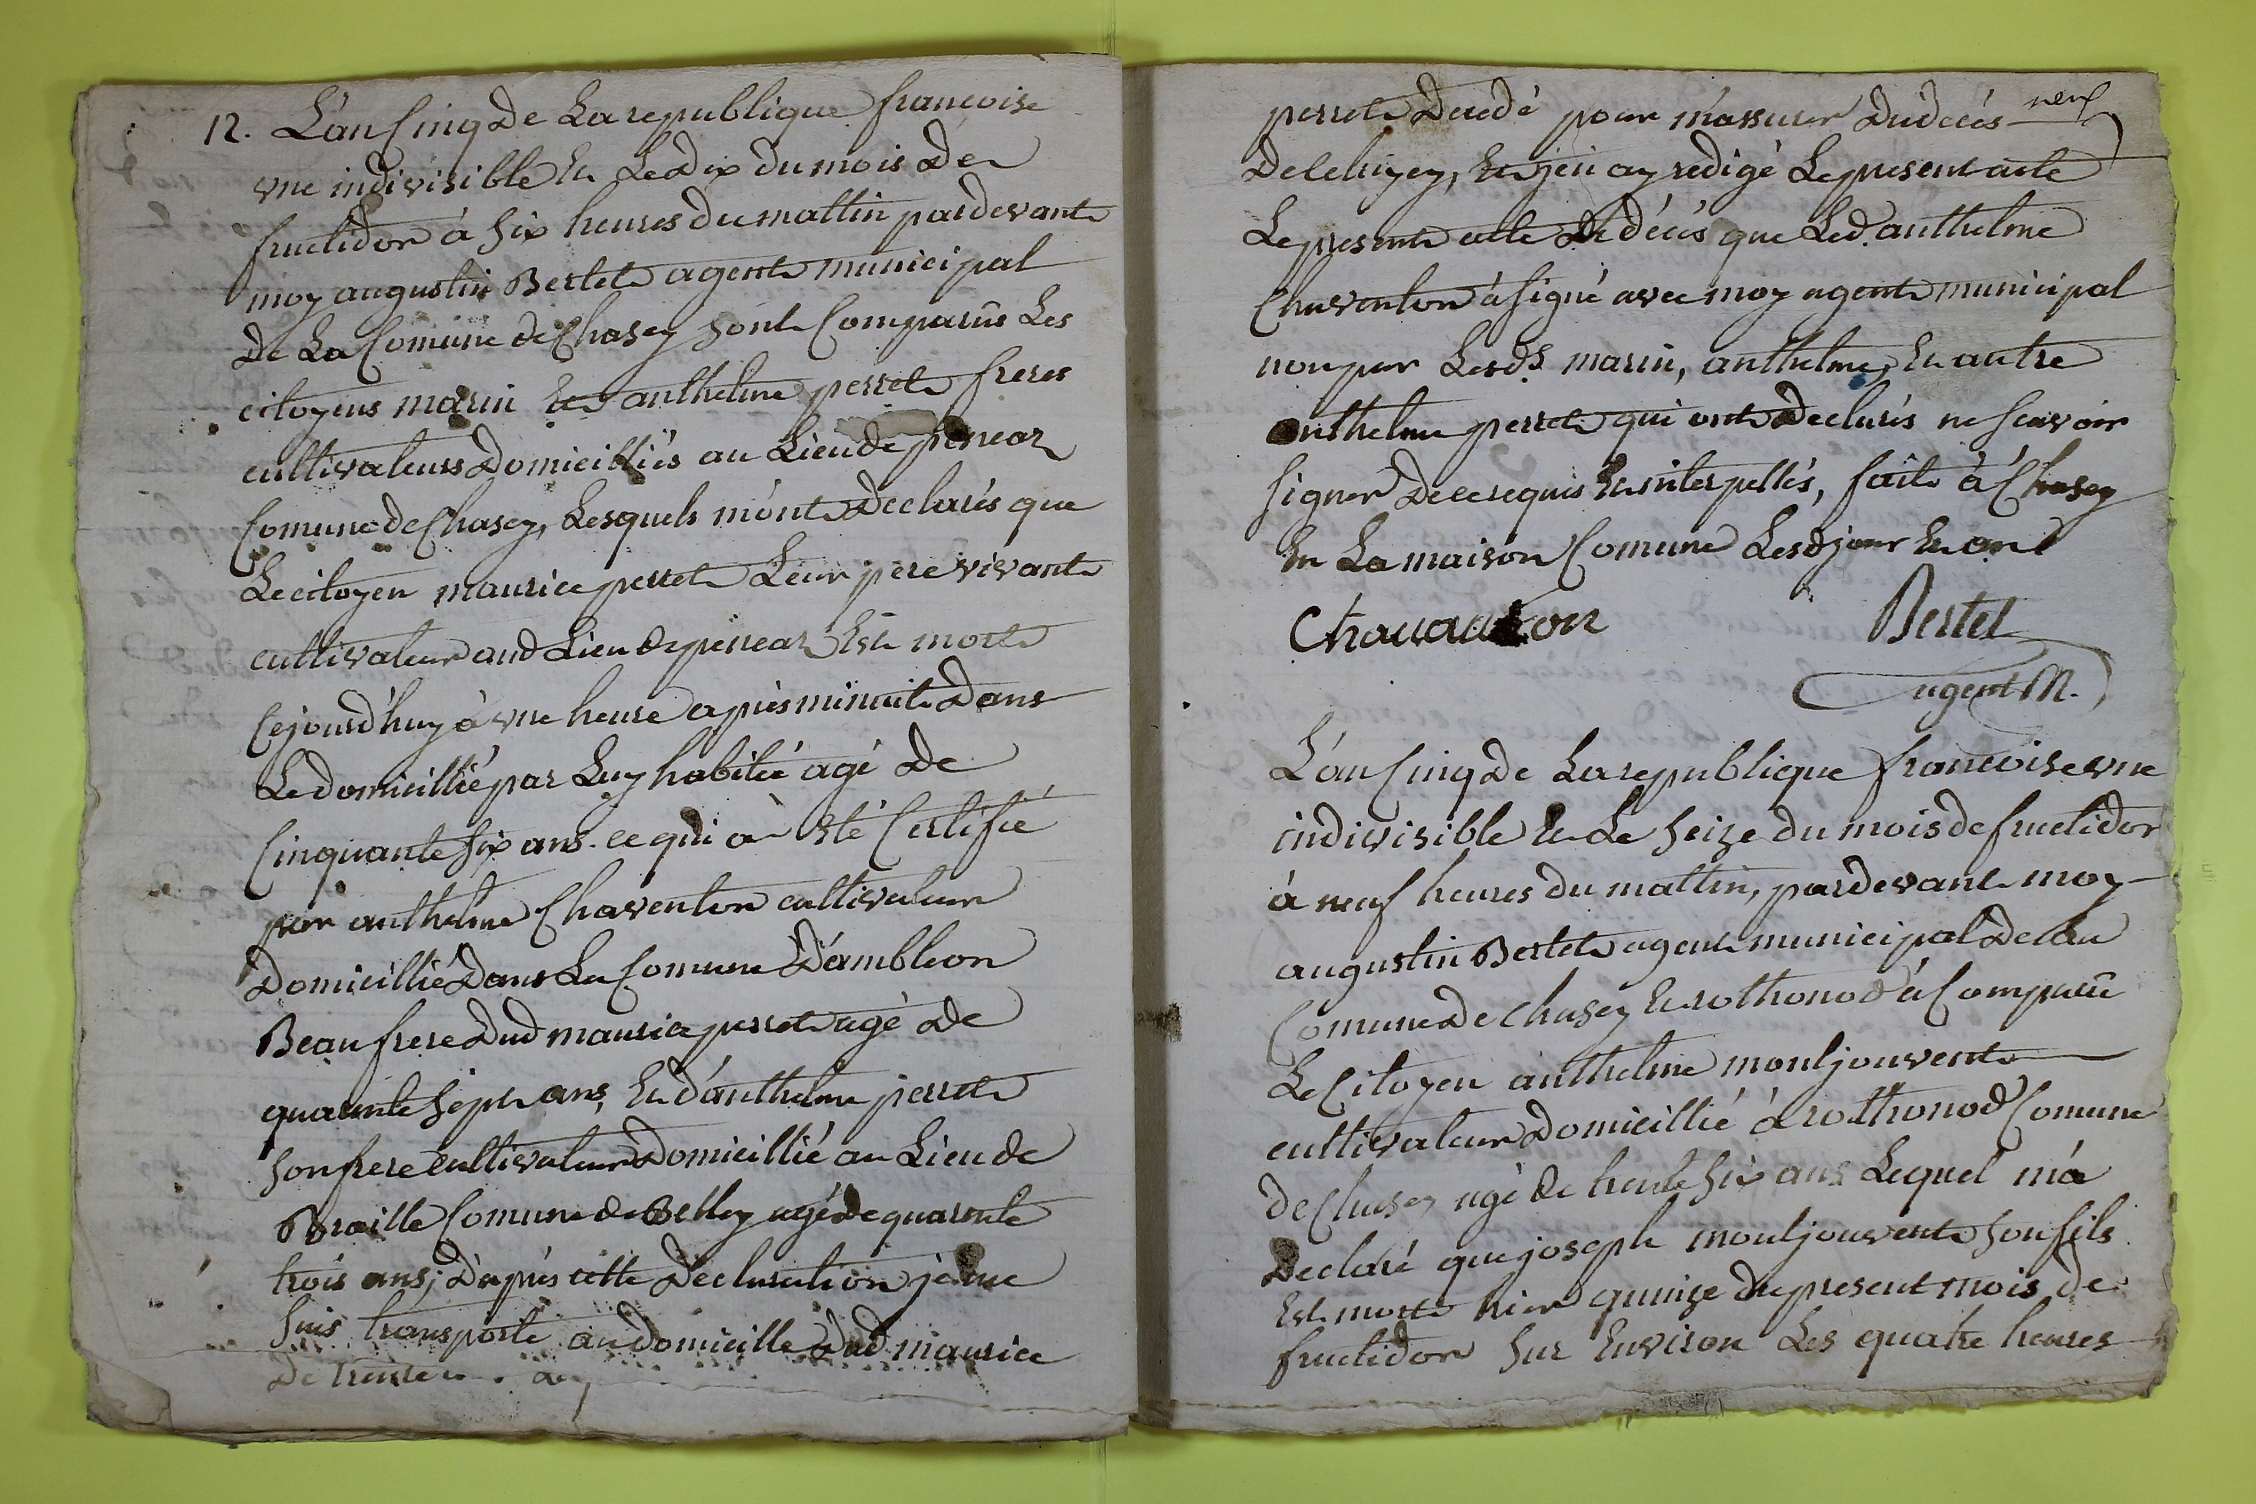 12. L'an Cinq de La republique francoise
vne indivisible Et Le dix du mois de
fructidor à six heures du mattin pardevant
moy augustin Bertet agent municipal
de La Comune de Chasey sont Comparûs Les
citoyens marin Et anthelme perret freres
cultivateurs domiciliés au Lieu de penear
Comune de Chasey, Lesquels m'ont declarés que
Le citoyen maurice perret Leur pere vivant
cultivateur aud Lieu de penear Est mort
Cejourd'huy à vne heure après minuit dans
Le domicillié par Luy habitée agé de
Cinquante six ans. ce qui à Eté Certifié
par anthelme Chaventon cultivateur
domicillié dans La Comune d'ambleon
Beau frere dud maurice perret agé de
quarante sept ans, Et d'anthelme perret
son frere cultivateur domicillié au Lieu de
Braille Comune de Belley agé de quarente
trois ans; d'après cette declaration je me
suis transporté au domicille dud maurice
de trente
perret decedé pour m'assurer du décés neuf
de celuy cy, Et j'en ay redigé Le present acte
Le present acte de décés que Led. anthelme
Chaventon à signé avec moy agent municipal
non par Lesds. marin, anthelme, Et autre
anthelme perret qui ont declarés ne scavoir
signer de ce requis Et interpellés, fait à Chasey
En La maison Comune Lesd jour Et an
Chavanton Bertet
agent M.
L'an Cinq de La republique francoise vne
indivisible Et Le seize du mois de fructidor
à neuf heures du mattin, pardevant moy
augustin Bertet agent municipal de La
Comune de Chasey Et rothonod à Comparû
Le Citoyen anthelme montjouvent
cultivateur domicillié à rothonod Comune
de Chasey agé de trente six ans Lequel m'a
declaré que joseph montjouvent son fils
Est mort hier quinze du present mois de
fructidor sur Environ Les quatre heures